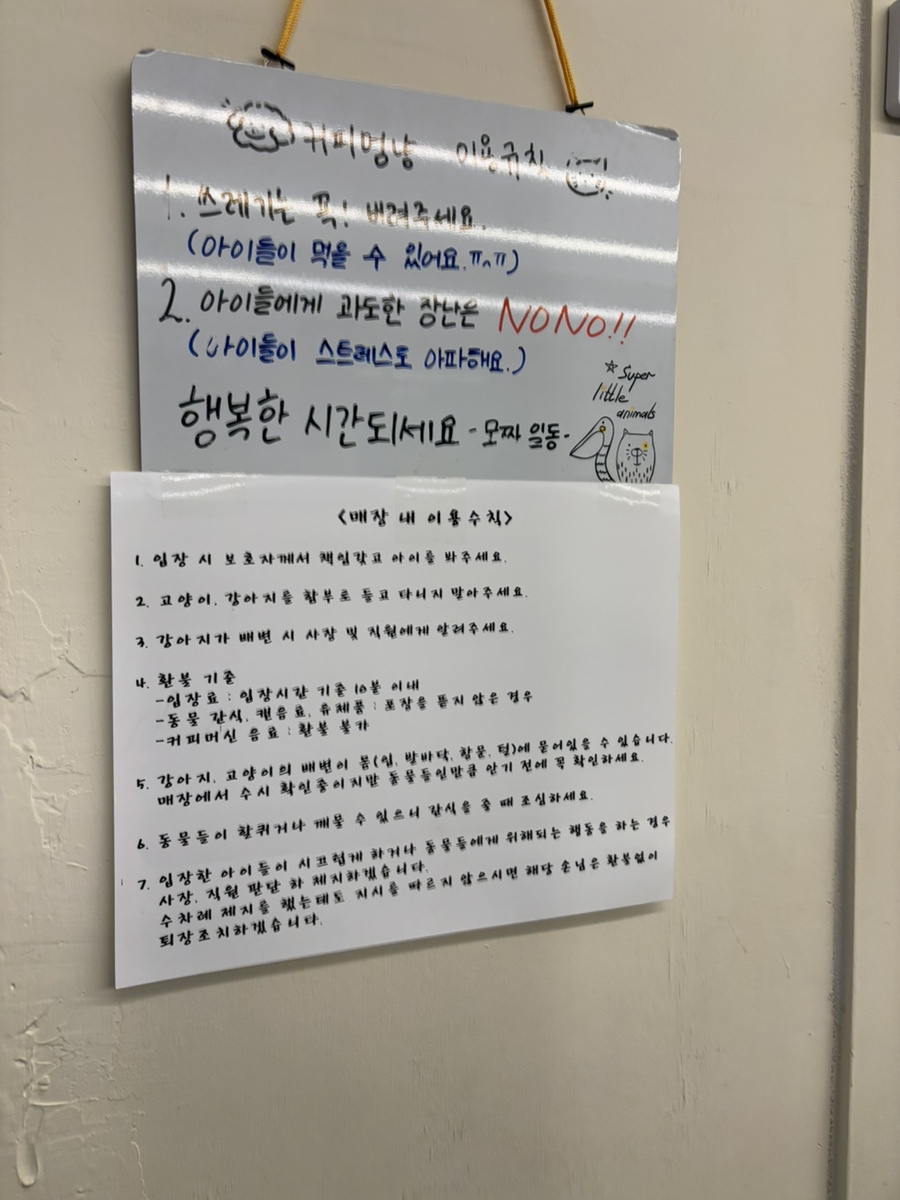 커피멍냥 이용규칙
1. 쓰레기는 꼭! 버려주세요.
(아이들이 먹을 수 있어요.ㅠㅅㅠ)
2. 아이들에게 과도한 장난은 NONO!!
(아이들이 스트레스로 아파해요.)
☆Super
little
animals
행복한 시간되세요 -모짜 일동-
<매장 내 이용수칙>
1. 입장 시 보호자께서 책임갖고 아이를 봐주세요.
2. 고양이, 강아지를 함부로 들고 다니지 말아주세요.
3. 강아지가 배변 시 사장 및 직원에게 알려주세요.
4. 환불 기준
-입장료 : 입장시간 기준 10분 이내
-동물 간식, 캔음료, 유제품 : 포장을 뜯지 않은 경우
-커피머신 음료 : 환불 불가
5. 강아지, 고양이의 배변이 몸(입, 발바닥, 항문, 털)에 묻어있을 수 있습니다.
매장에서 수시 확인중이지만 동물들인만큼 안기 전에 꼭 확인하세요.
6. 동물들이 할퀴거나 깨물 수 있으니 간식을 줄 때 조심하세요.
7. 입장한 아이들이 시끄럽게 하거나 동물들에게 위해되는 행동을 하는 경우
사장, 직원 판단 하 제지하겠습니다.
수차례 제지를 했는데도 지시를 따르지 않으시면 해당 손님은 환불없이
퇴장조치하겠습니다.